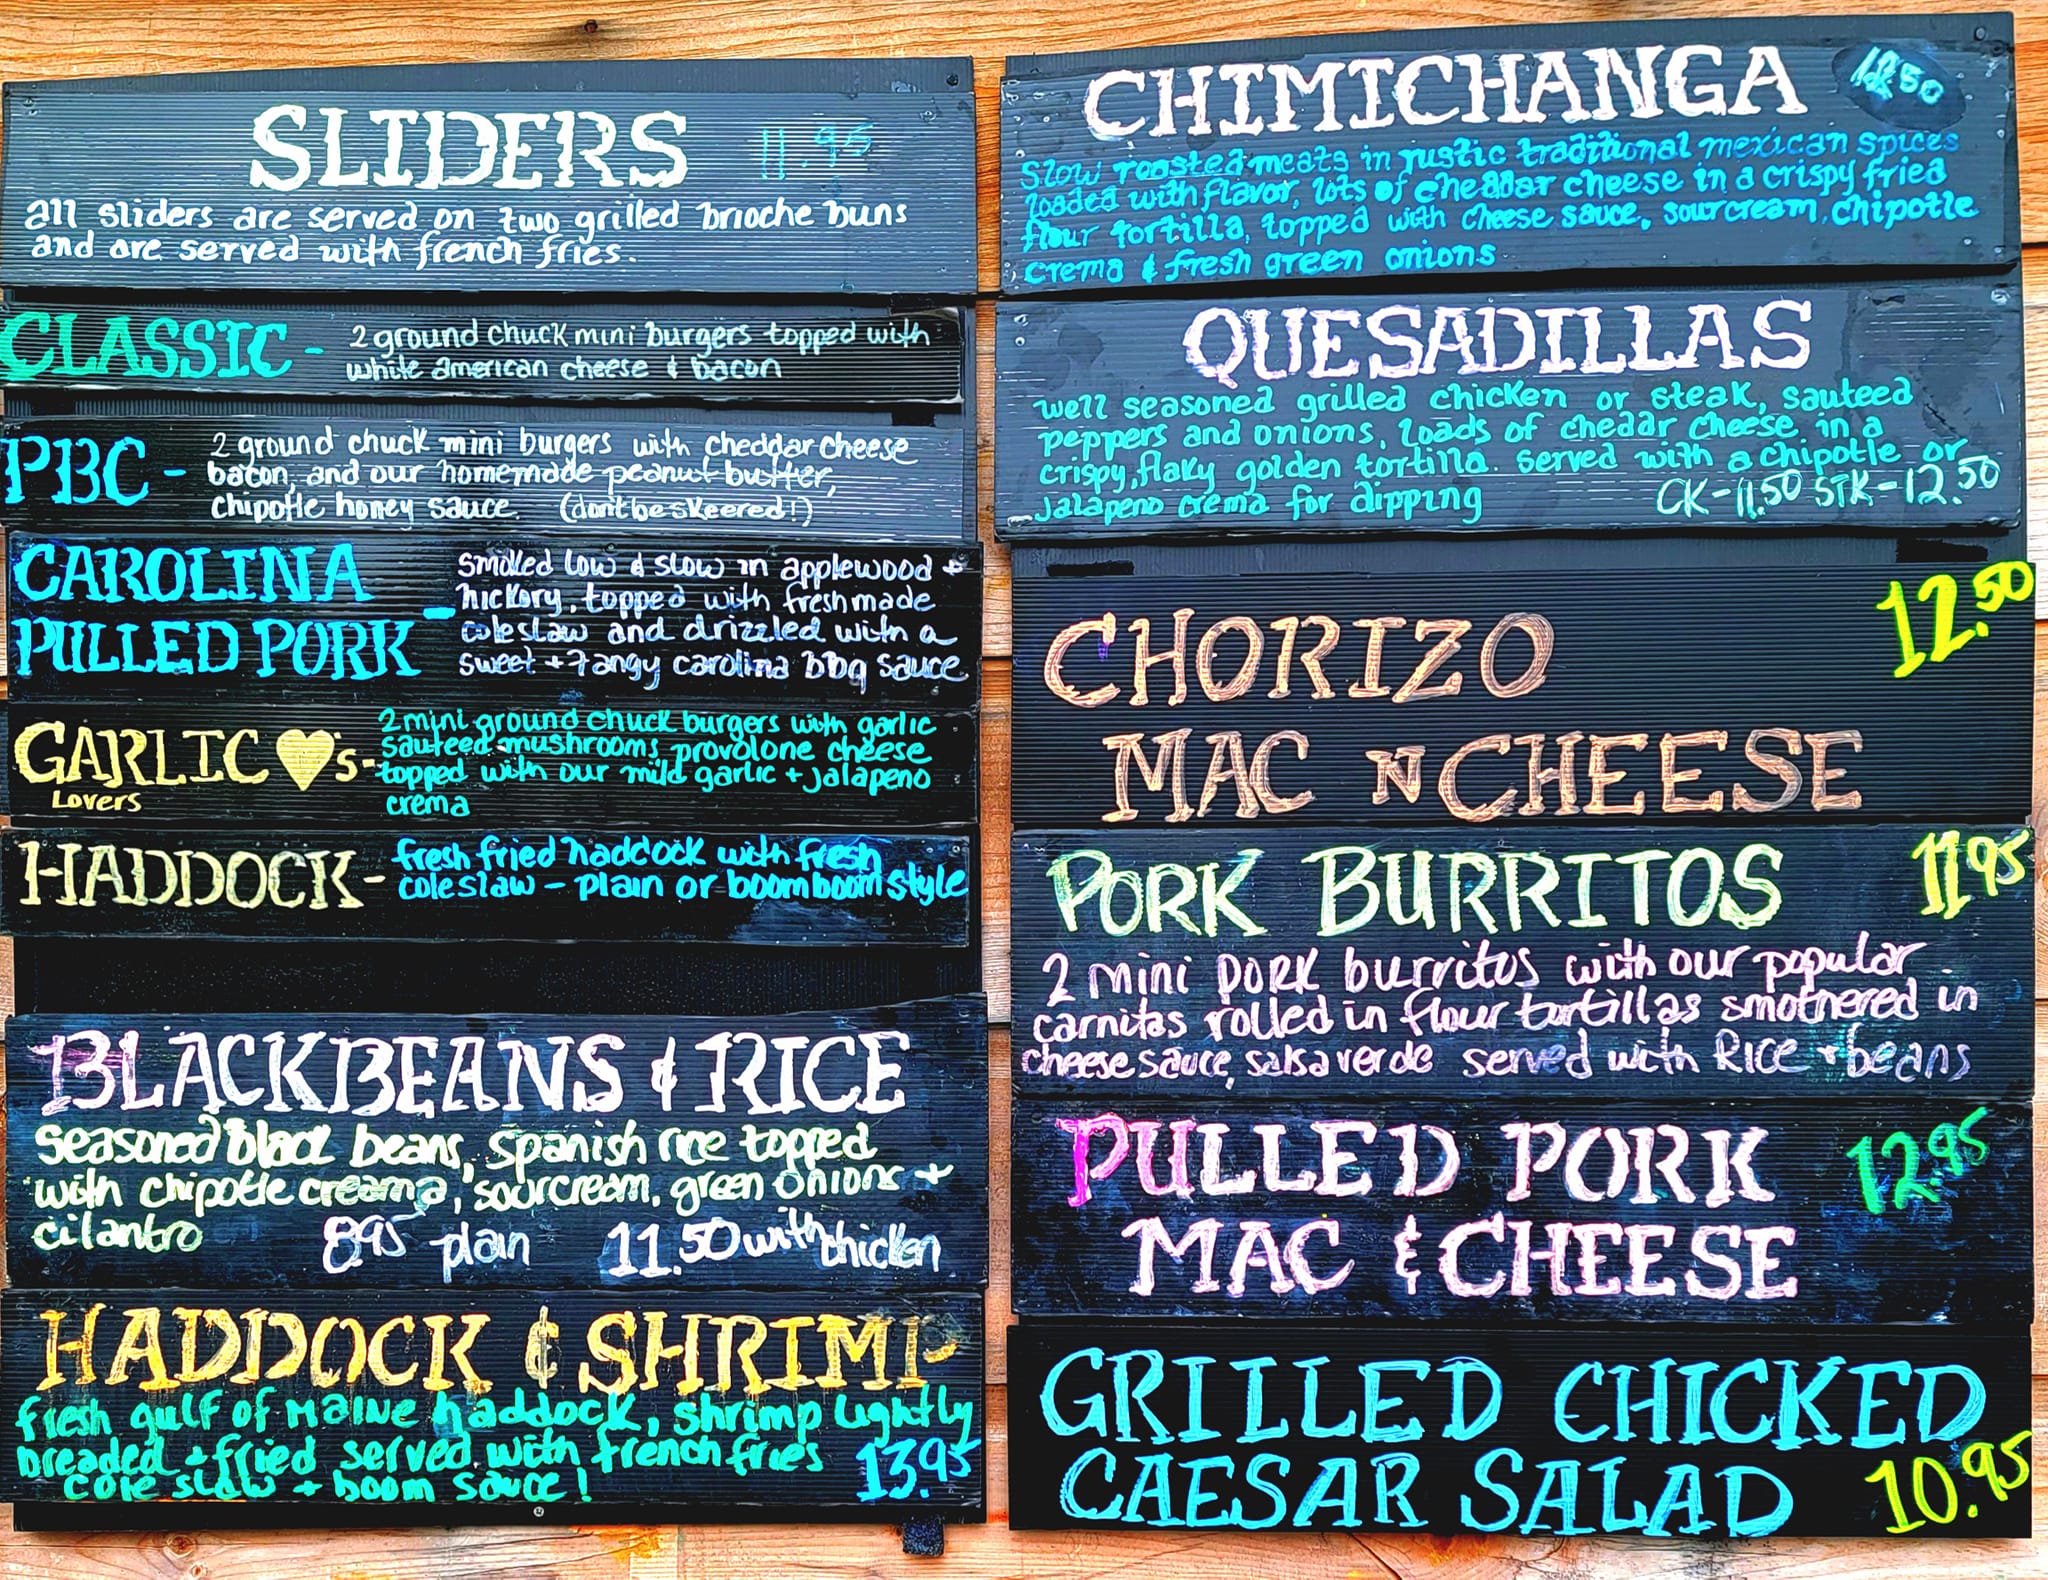 SLIDERS 11.95
all sliders are served on two grilled brioche buns
and are served with french fries.
CLASSIC - 2 ground chuck mini burgers topped with
white american cheese & bacon
PBC - 2 ground chuck mini burgers with cheddar cheese
bacon, and our homemade peanut butter,
chipotle honey sauce. (don't be skeered!)
CAROLINA
PULLED PORK -
smoked low & slow in applewood +
hickory, topped with fresh made
coleslaw and drizzled with a
sweet + tangy carolina bbq sauce
GARLIC ♥'s -
Lovers
2 mini ground chuck burgers with garlic
sauteed mushrooms, provolone cheese
topped with our mild garlic + jalapeno
crema
HADDOCK - fresh fried haddock with fresh
coleslaw - plain or boomboom style
BLACKBEANS & RICE
seasoned black beans, spanish rice topped
with chipotle creama, sourcream, green onions +
cilantro 8.95 plain 11.50 with chicken
HADDOCK & SHRIMP
fresh gulf of MAINE haddock, shrimp lightly
breaded + fried served with french fries
cole slaw + boom sauce! 13.95
CHIMICHANGA 12.50
slow roasted meats in rustic traditional mexican spices
loaded with flavor, lots of cheddar cheese in a crispy fried
flour tortilla, topped with cheese sauce, sourcream, chipotle
crema & fresh green onions
QUESADILLAS
well seasoned grilled chicken or steak, sauteed
peppers and onions, loads of cheddar cheese in a
crispy, flaky golden tortilla. served with a chipotle or
jalapeno crema for dipping CK-11.50 STK-12.50
CHORIZO 12.50
MAC N CHEESE
PORK BURRITOS 11.95
2 mini pork burritos with our popular
carnitas rolled in flour tortillas smothered in
cheese sauce, salsa verde served with RICE + beans
PULLED PORK 12.95
MAC & CHEESE
GRILLED CHICKED
CAESAR SALAD 10.95